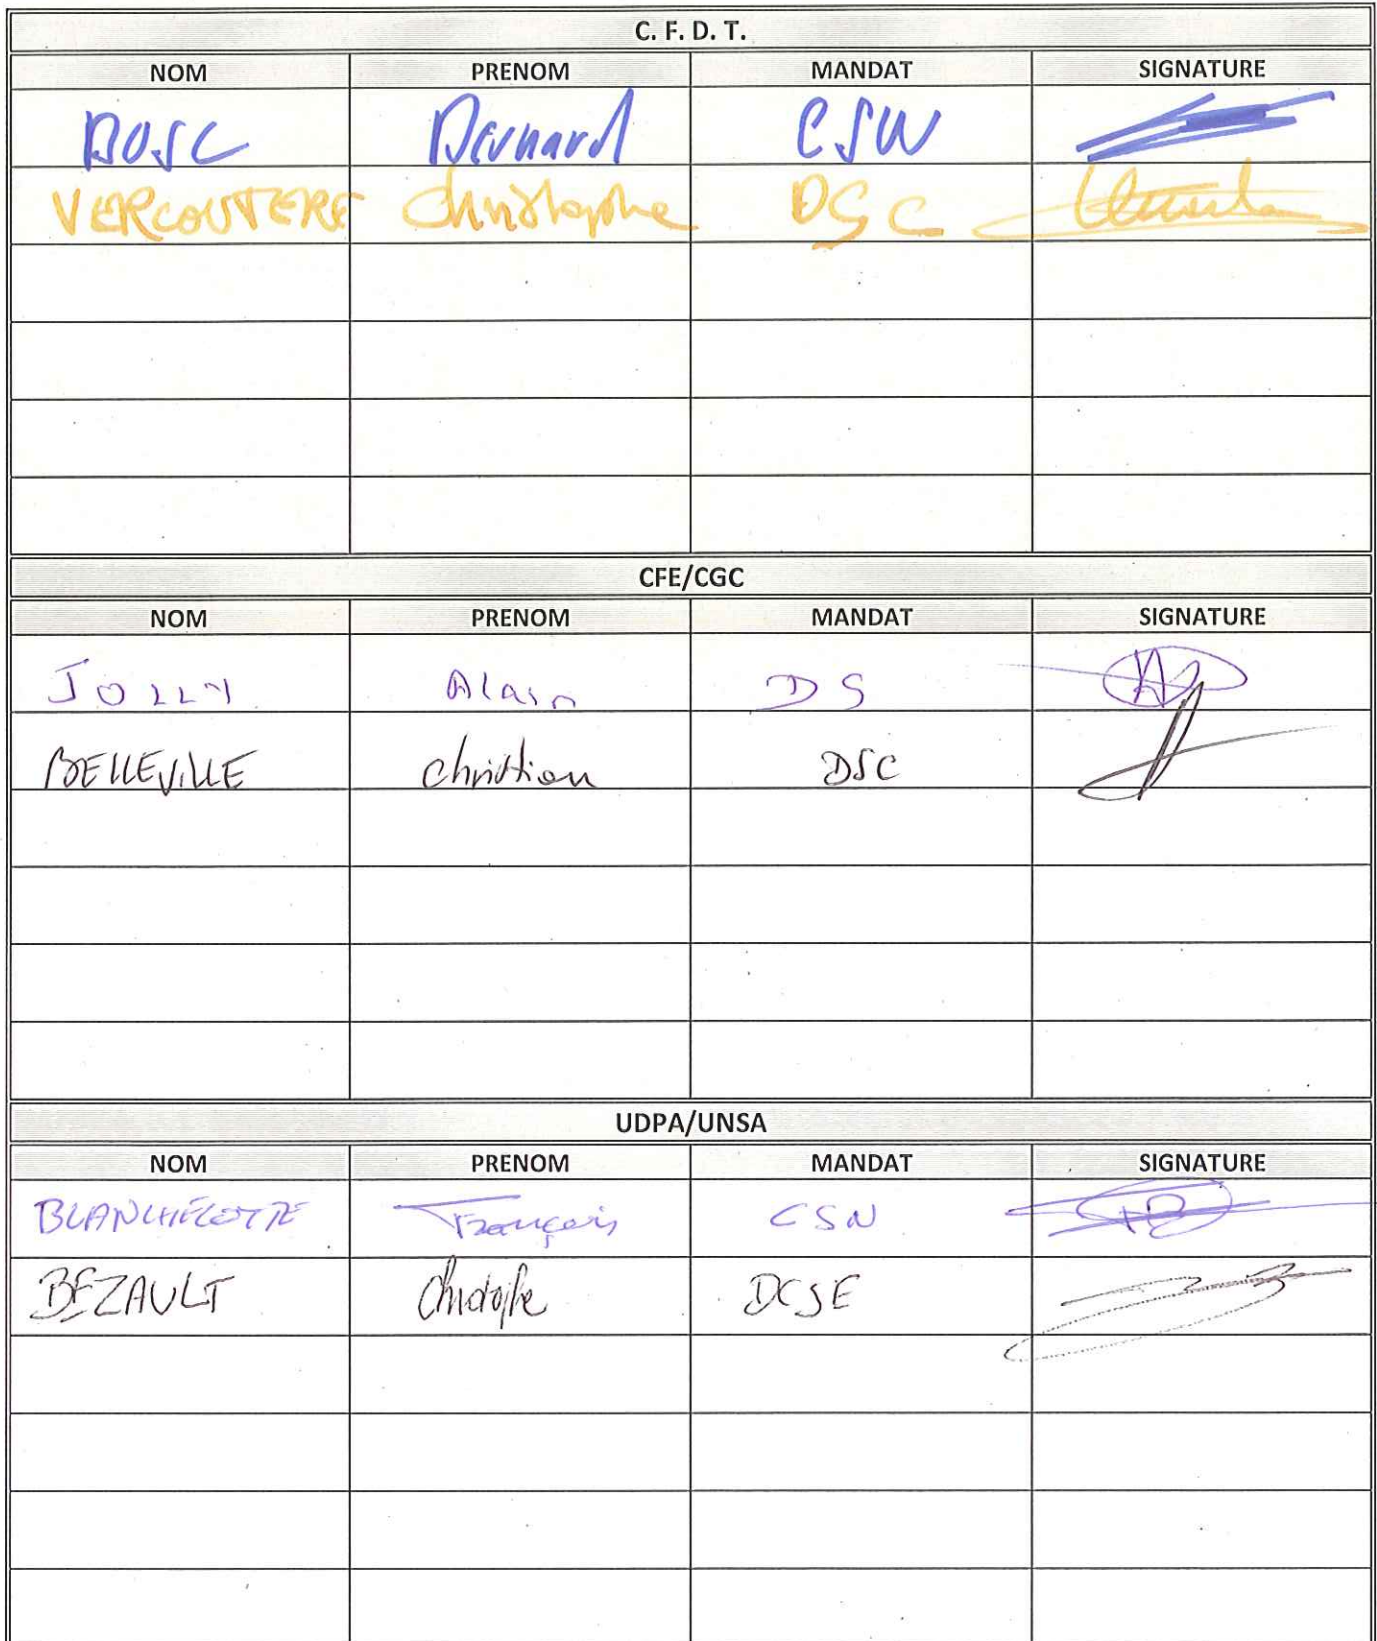 C. F. D. T.
NOM PRENOM MANDAT SIGNATURE
BOSC Bernard CSN
VERCOUTERE Christophe DSC
CFE/CGC
NOM PRENOM MANDAT SIGNATURE
JOLLY Alain DS
BELLEVILLE Christian DSC
UDPA/UNSA
NOM PRENOM MANDAT SIGNATURE
BLANCHECOTTE François CSN
BEZAULT Christophe DCSE